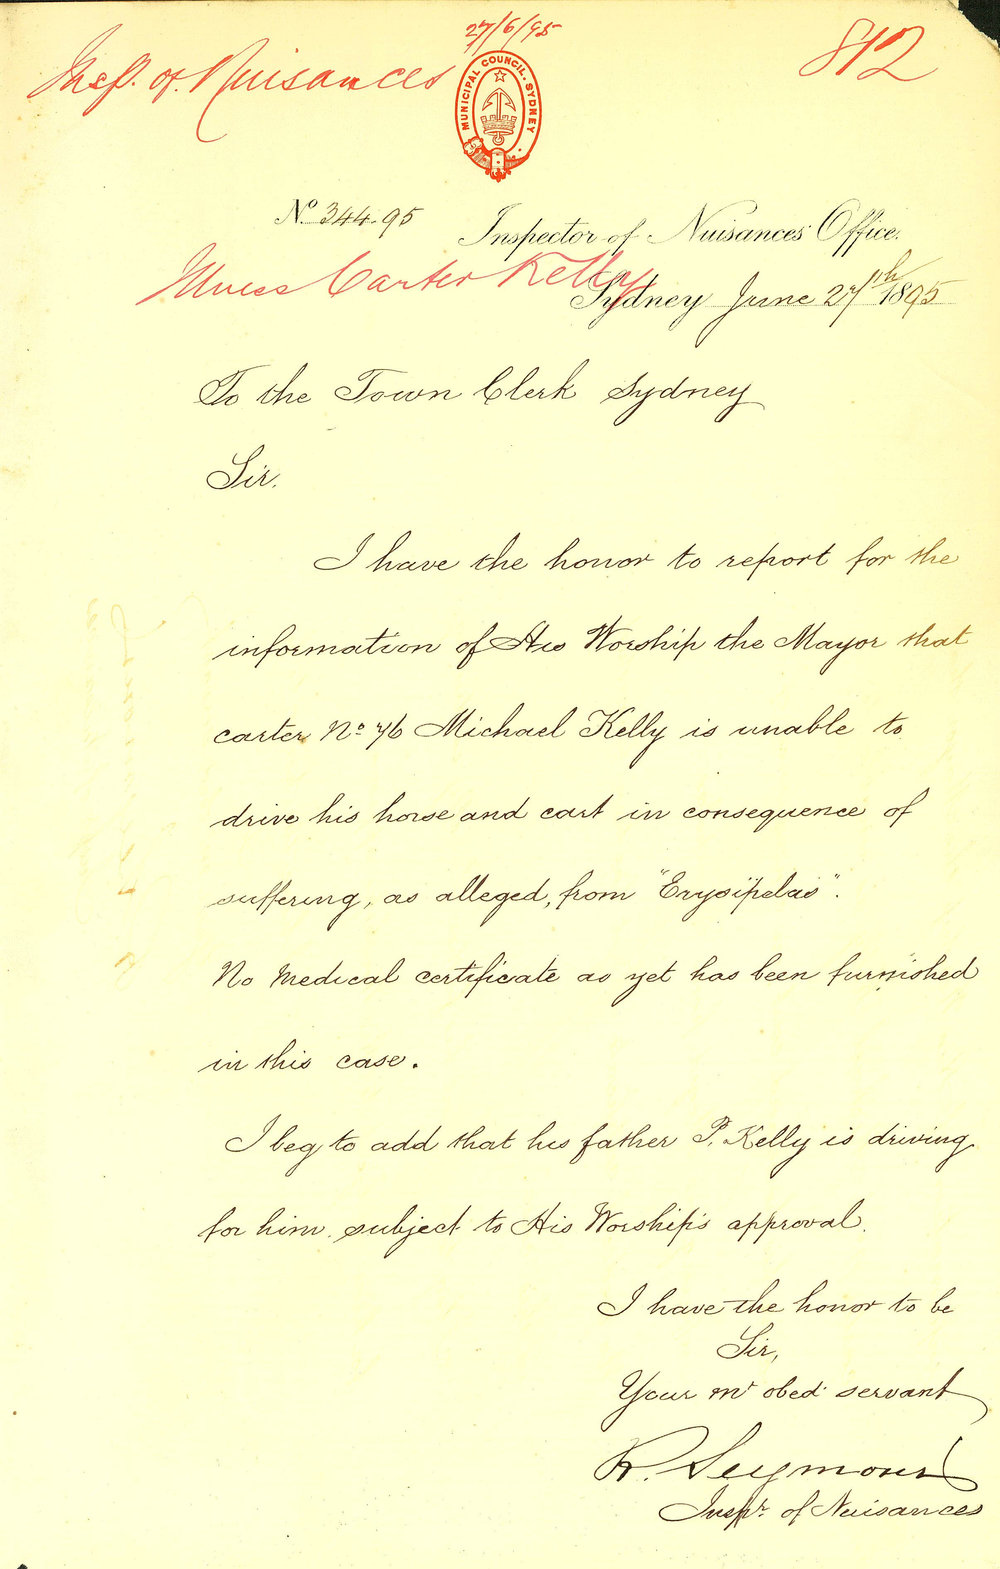 27/6/95
Insp. of Nuisances
812
MUNICIPAL COUNCIL. SYDNEY
No 344.95
Inspector of Nuisances Office.
Carter Kelly
Sydney June 27th 1895
To the Town Clerk Sydney
Sir.
I have the honor to report for the
information of His Worship the Mayor that
carter No 76 Michael Kelly is unable to
drive his horse and cart in consequence of
suffering, as alleged, from "Erysipelas".
No Medical certificate as yet has been furnished
in this case.
I beg to add that his father P. Kelly is driving
for him. subject to His Worship's approval.
I have the honor to be
Sir,
Your mt obed. servant
R. Seymour
Inspr. of Nuisances